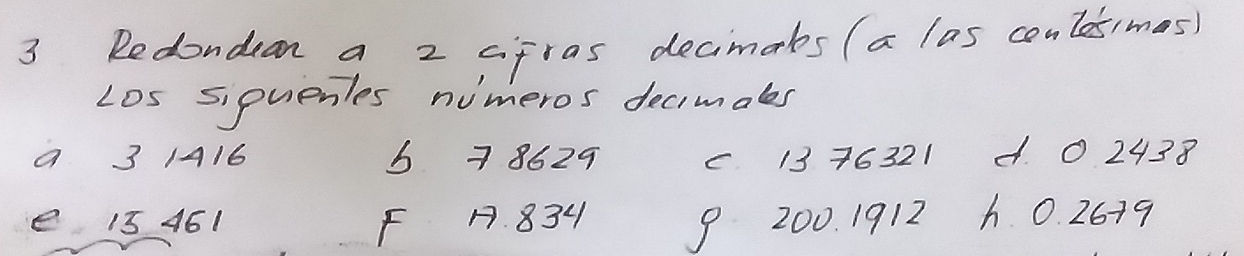 3 Redondear a 2 cifras decimales (a las centésimas)
Los siguientes números decimales
a 3 1416 b. 7 8629 c 13 76321 d. 0 2438
e 15 461 F 17.834 g. 200.1912 h. 0.2679